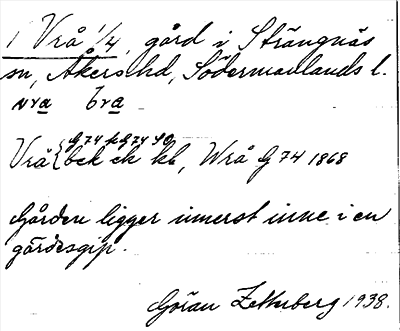 1 Vrå 1/4, gård i Strängnäs
sn, Åkers hd, Södermanlands l.
vra bra
G 74 k G 74 SO
Vrå bek ek kb, Wrå G 74 1868
Gården ligger innerst inne i en
gärdesgip.
Göran Zetterberg 1938.